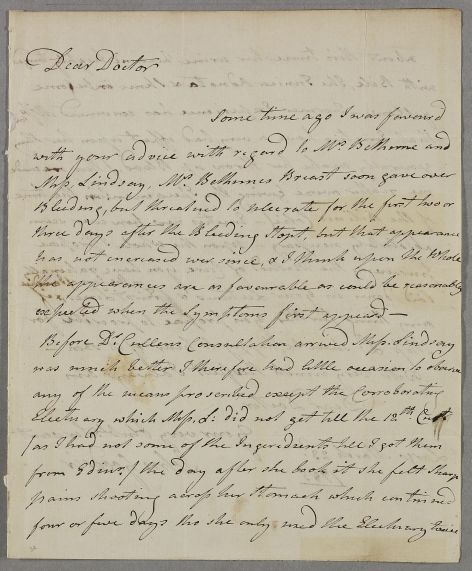 Dear Doctor
Some time ago I was favourd
with your advice with regard to Mrs Bethune and
Miss Lindsay, Mrs Bethunes Breast soon gave over
Bleeding, but threatned to ulcerate for the first two or
three days after the Bleeding stopt but that appearance
has not increased ever since, & I think upon the Whole
the appearances are as favourable as could be reasonably
expected when the Symptoms first appeard —
Before Dr Cullens Consultation arrived Miss Lindsay
was much better I therefore had little occasion to observe
any of the means prescribed except the Corroborating
Electuary which Miss L: did not get till the 12th Curt
/as I had not some of the Ingredients till I got them
from Edinr / the day after she took it she felt Sharp
pains shooting across her Stomach which continued
four or five days tho she only used the Electuary twice